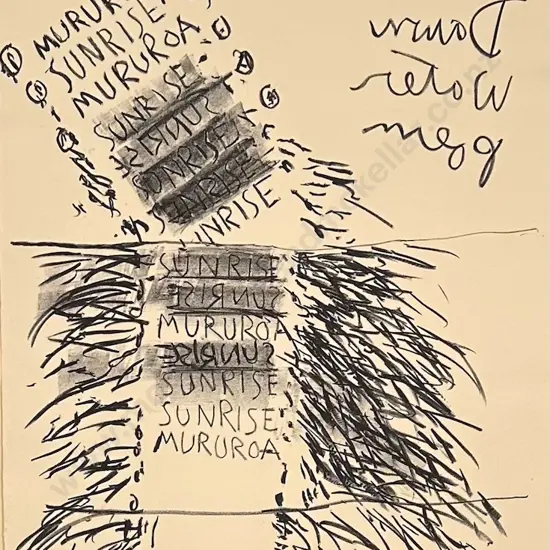 MURURO
SUNRISE
MURUROA
SUNRISE
SUNRISE
SUNRISE
SUNRISE
UNRISE
Dawn
Water
Poem
SUNRISE
SUNRISE
MURUROA
SUNRISE
SUNRISE
SUNRISE
MURUROA